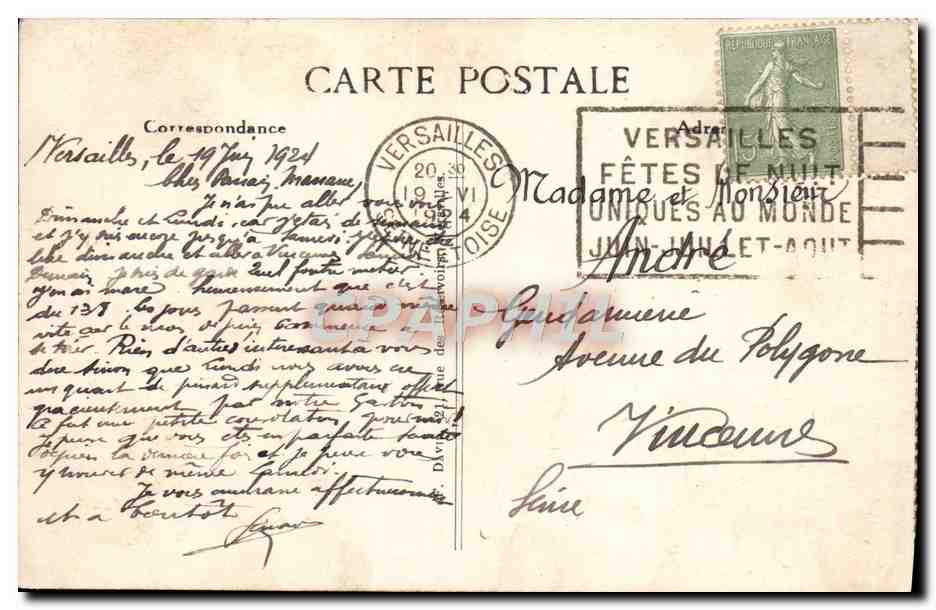 CARTE POSTALE
Correspondance
Adre
RÉPUBLIQUE FRANÇAISE
15
VERSAILLES
20
19 VI
1924
OISE
VERSAILLES
FÊTES DE NUIT
UNIQUES AU MONDE
JUIN-JUILLET-AOUT
Versailles, le 19 Juin 1924
Chers
Je n'ai pu aller vous voir
Dimanche et Lundi, car j'étais de semaine
et j'y suis encore jusqu'à Samedi.
dimanche et aller à Vincennes
Demain je suis de garde Quel foutu métier
y'en ai marre heureusement que c'est
du 138 les jours passent quand même
vite car le mois de juin commence à
se tirer Rien d'autre intéressant à vous
dire sinon que lundi nous avons eu
un quart de pinard supplémentaire offert
gracieusement par notre Gaston
a fait une petite consolation pour moi!
Je pense que vous êtes en parfaite santé
depuis la dernière fois et je pense vous
y trouver de même Samedi.
Je vous embrasse affectueusement
et à bientôt
Madame et Monsieur
André
Gendarmerie
Avenue du Polygone
Vincennes
Seine
rue des Réservoirs
CPAPHIL